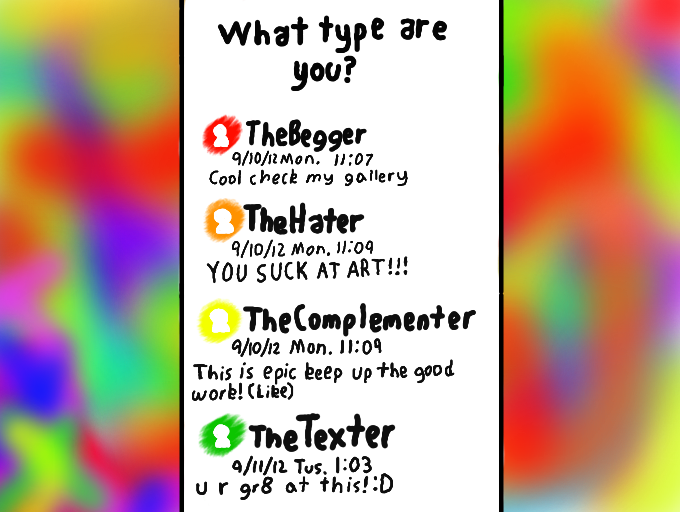 What type are
you?
TheBegger
9/10/12 Mon. 11:07
Cool check my gallery
TheHater
9/10/12 Mon. 11:09
YOU SUCK AT ART!!!
TheComplementer
9/10/12 Mon. 11:09
This is epic keep up the good
work! (Like)
TheTexter
9/11/12 Tus. 1:03
u r gr8 at this! :D